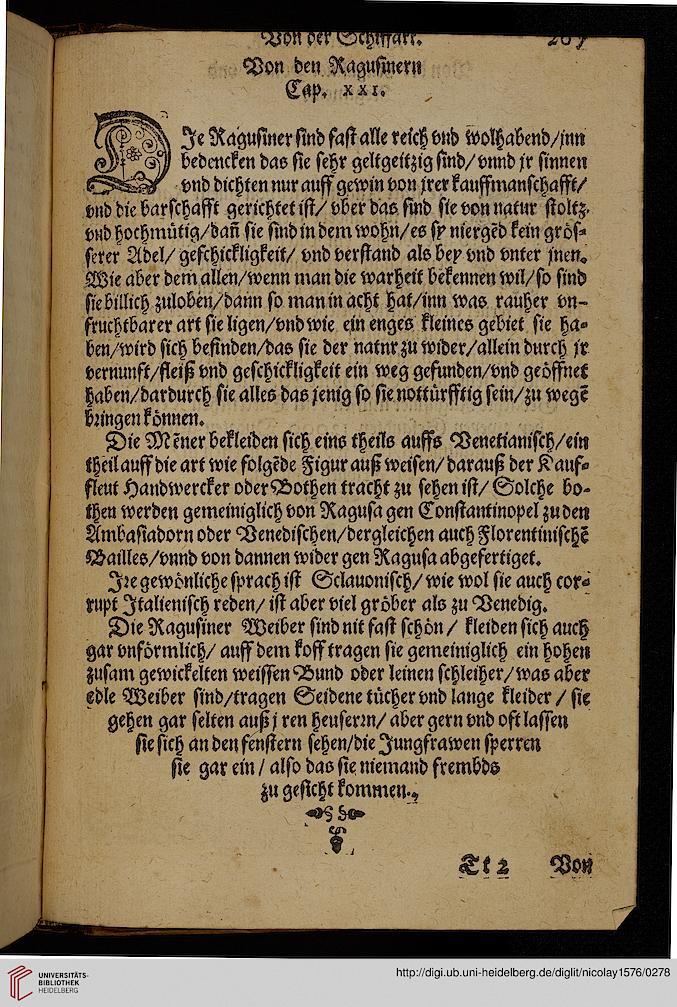 Von der Schiffart.
Von den Ragusinern
Cap. xxi.
DIe Ragusiner sind fast alle reich vnd wolhabend/jnn
bedencken das sie sehr geltgeitzig sind/vnnd jr sinnen
vnd dichten nur auff gewin von jrer kauffmanschafft/
vnd die barschafft gerichtet ist/ vber das sind sie von natur stoltz
vnd hochmütig/dañ sie sind in dem wohn/es sy niergẽd kein grös-
serer Adel/ geschickligkeit/ vnd verstand als bey vnd vnter jnen.
Wie aber dem allen/wenn man die warheit bekennen wil/so sind
sie billich zuloben/dann so man in acht hat/inn was rauher vn-
fruchtbarer art sie ligen/vnd wie ein enges kleines gebiet sie ha-
ben/wird sich befinden/das sie der natur zu wider/allein durch jr
vernunft/fleiß vnd geschickligkeit ein weg gefunden/vnd geöffnet
haben/dardurch sie alles das jenig so sie nottürfftig sein/zu wegẽ
bringen können.
Die Mẽner bekleiden sich eins theils auffs Venetianisch/ein
theil auff die art wie folgẽde Figur auß weisen/darauß der Kauf-
fleut Handwercker oder Bothen tracht zu sehen ist/ Solche bo-
then werden gemeiniglich von Ragusa gen Constantinopel zu den
Ambasiadorn oder Venedischen/dergleichen auch Florentinischẽ
Bailles/vnnd von dannen wider gen Ragusa abgefertiget.
Ire gewönliche sprach ist Sclauonisch/ wie wol sie auch cor-
rupt Italienisch reden/ ist aber viel gröber als zu Venedig.
Die Ragusiner Weiber sind nit fast schön / kleiden sich auch
gar vnförmlich/ auff dem koff tragen sie gemeiniglich ein hohen
zusam gewickelten weissen Bund oder leinen schleiher/was aber
edle Weiber sind/tragen Seidene tücher vnd lange kleider / sie
gehen gar selten auß j ren heusernn/ aber gern vnd oft lassen
sie sich an den fenstern sehen/die Jungfrawen sperren
sie gar ein / also das sie niemand frembds
zu gesicht kommen.
Tt 2 Von
UNIVERSITÄTS-
BIBLIOTHEK
HEIDELBERG
http://digi.ub.uni-heidelberg.de/diglit/nicolay1576/0278